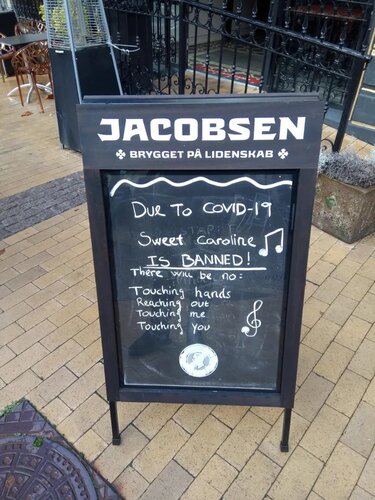 JACOBSEN
BRYGGET PÅ LIDENSKAB
DUE TO COVID-19
Sweet Caroline
IS BANNED!
There will be no:
Touching hands
Reaching out
Touching me
Touching you